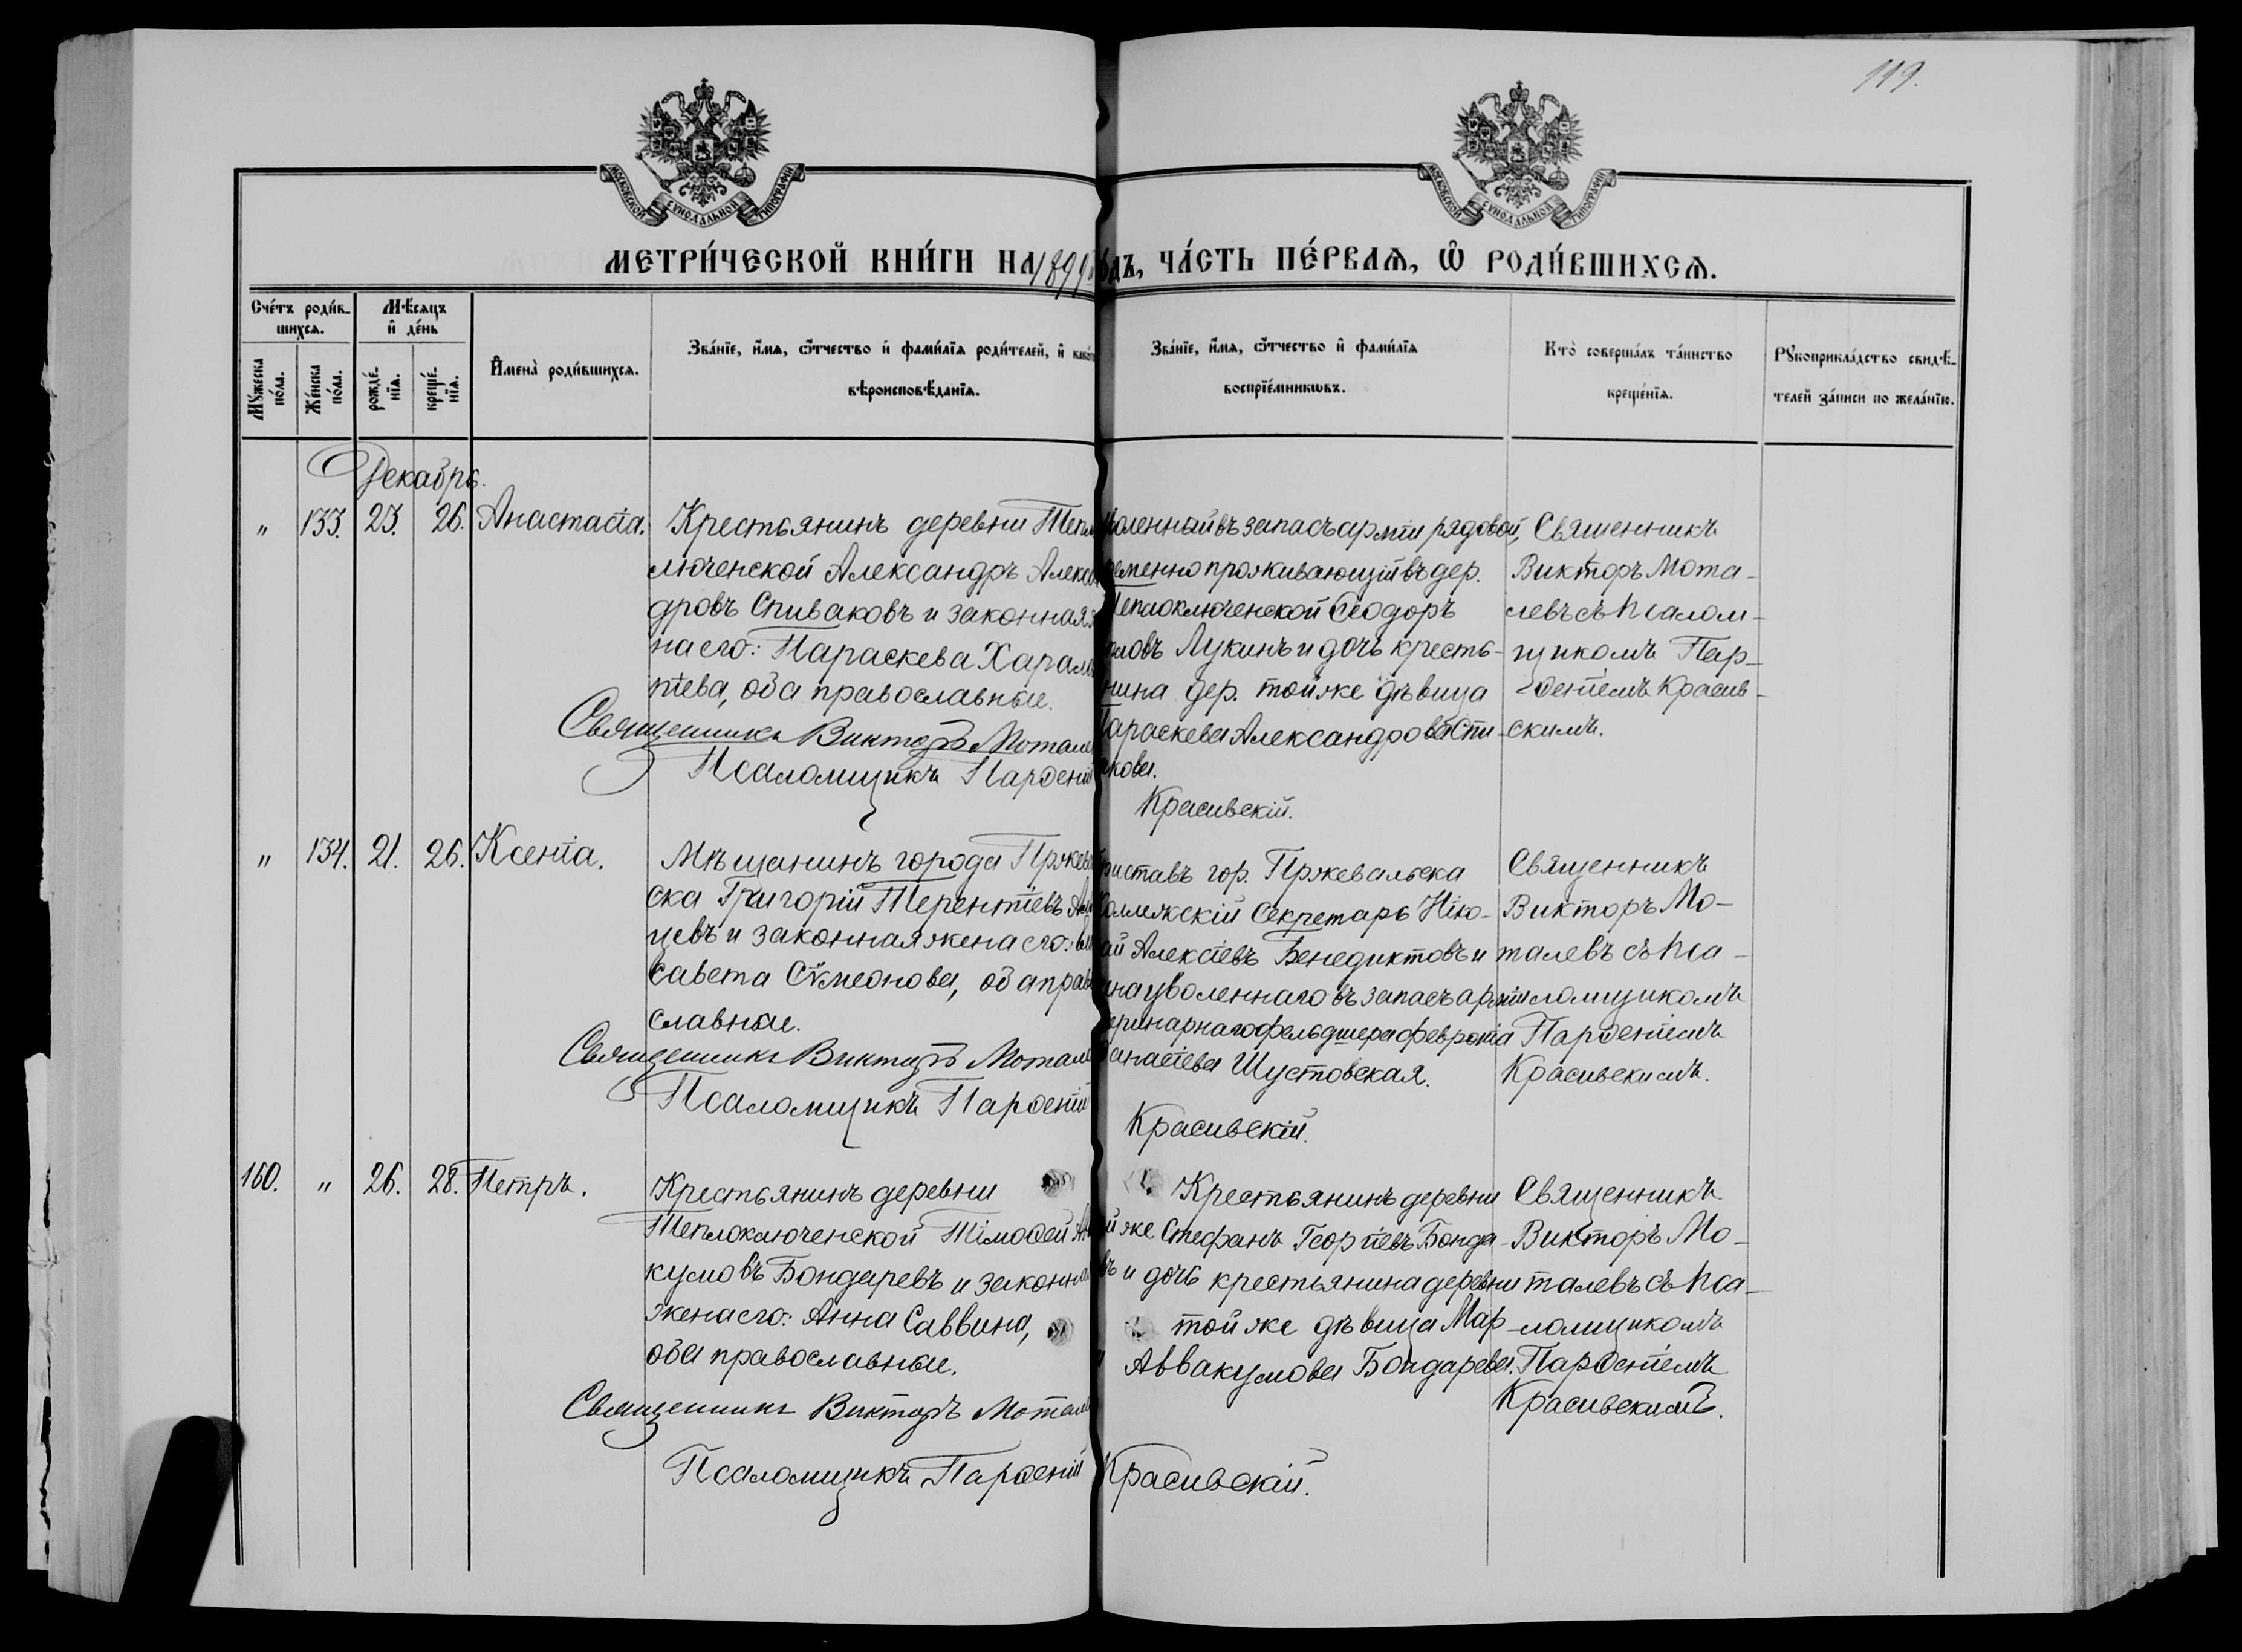 119.
МОСКОВСКОЙ СѴНОДАЛЬНОЙ ТИПОГРАФІИ
МОСКОВСКОЙ СѴНОДАЛЬНОЙ ТИПОГРАФІИ
МЕТРИ́ЧЕСКОЙ КНИ́ГИ НА 1899 ГОДЪ, ЧА́СТЬ ПЕ́РВАѦ, Ѡ҆ РОДИ́ВШИХСѦ.
Сче́тъ роди́в-
шихсѧ.
Мѣ́сѧцъ
и҆ де́нь
Мꙋ́жеска по́ла.
Же́нска по́ла.
рожде́-нїѧ.
креще́-нїѧ.
И҆мена̀ роди́вшихсѧ.
Зва́нїе, и҆́мѧ, ѻ҆́тчество и҆ фами́лїѧ роди́телей, и҆
вѣроисповѣ́данїѧ.
Зва́нїе, и҆́мѧ, ѻ҆́тчество и҆ фами́лїѧ
воспрїе́мникѡвъ.
Кто̀ соверша́лъ та́инство
креще́нїѧ.
Рꙋкоприкла́дство свидѣ́-
телей за́писи по жела́нїю.
Декабрь.
" 133. 23. 26. Анастасія.
Крестьянинъ деревни Тепло
люченской Александръ Алексан
дровъ Спиваковъ и законная
на его: Параскева Харлам
піева, оба православные.
Священникъ Викторъ Мотале
Псаломщикъ Парѳеній
воленный въ запасъ арміи рядовой,
ременно проживающій въ дер.
Теплоключенской Ѳеодоръ
мовъ Лукинъ и дочь кресть-
нина дер. той же дѣвица
Параскева Александрова Спи-
акова.
Красивскій.
Священникъ
Викторъ Мота-
левъ съ псалом-
щикомъ Пар-
ѳеніемъ Красив-
скимъ.
" 134. 21. 26. Ксенія.
Мѣщанинъ города Пржева
ска Григорій Терентіевъ
цевъ и законная жена его:
савета Сѵмеонова, оба право
славные.
Священникъ Викторъ Мотале
Псаломщикъ Парѳеній
риставъ гор. Пржевальска
Коллежскій Секретарь Нико-
ай Алексіевъ Бенедиктовъ и
на уволеннаго въ запасъ арміи
еринарнаго фельдшера Февронія
ѳанасіева Шустовская.
Красивскій.
Священникъ
Викторъ Мо-
талевъ съ пса-
ломщикомъ
Парѳеніемъ
Красивскимъ.
160. " 26. 28. Петръ.
Крестьянинъ деревни
Теплоключенской Тімоѳей Ав
кумовъ Бондаревъ и законна
жена его: Анна Саввина,
оба православные.
Священникъ Викторъ Мотале
Псаломщикъ Парѳеній
Крестьянинъ деревни
й же Стефанъ Георгіевъ Бонда-
въ и дочь крестьянина деревни
той же дѣвица Мар-
Аввакумова Бондарева.
Красивскій.
Священникъ
Викторъ Мо-
талевъ съ пса-
ломщикомъ
Парѳеніемъ
Красивскимъ.